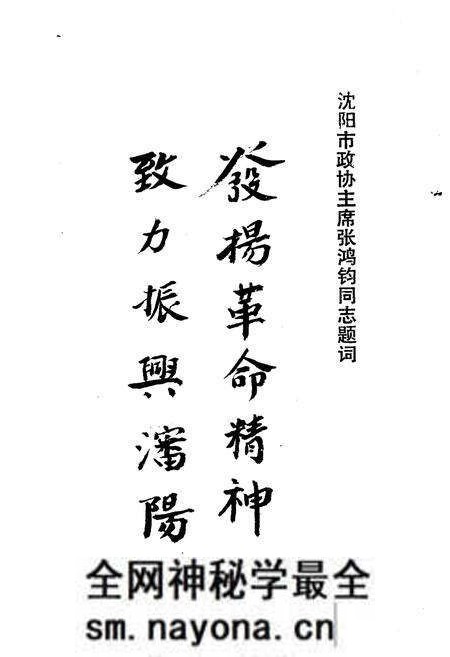 沈阳市政协主席张鸿钧同志题词
發揚革命精神
致力振興瀋陽
全网神秘学最全
sm.nayona.cn